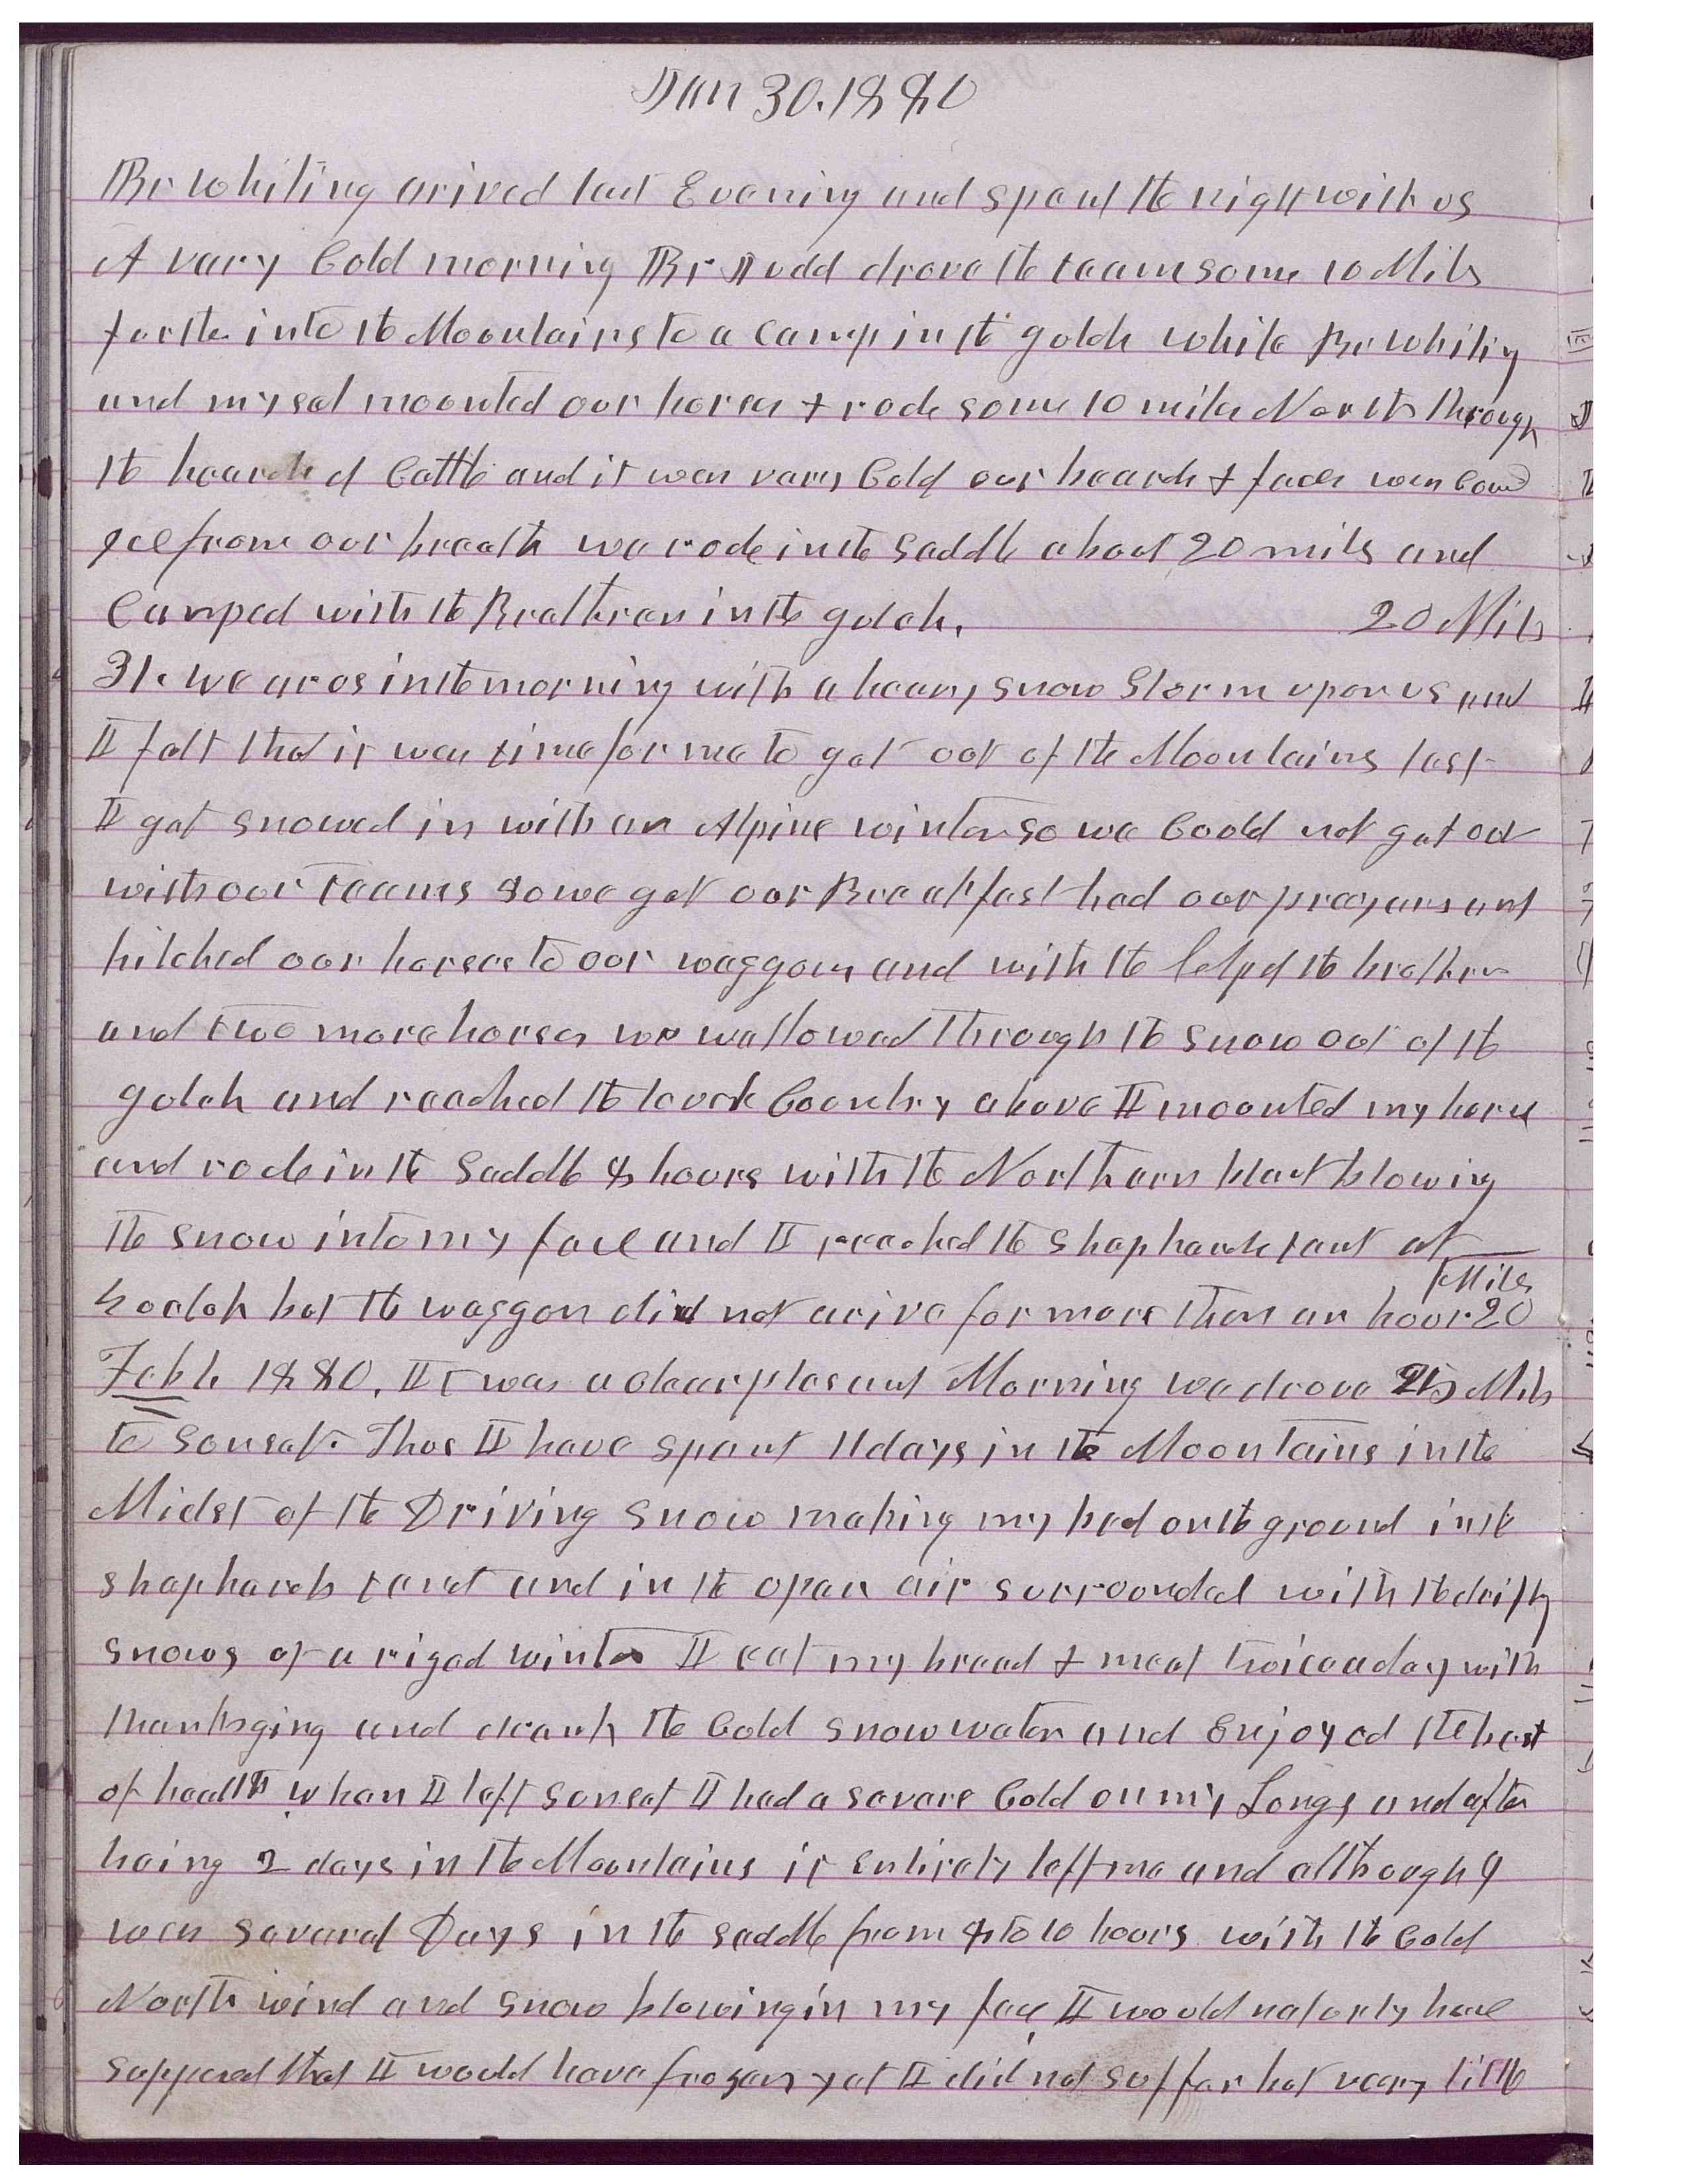 Jan 30. 1880
Br Whiting arived last Evening and spent the night with us
A vary Cold morning Br Judd drove the team some 10 Miles
further into the Mountains to a camp in the gulch while Br Whiting
and myself mounted our horses & rode some 10 miles North through
the heards of Cattle and it was vary Cold our beards & faces was
Ice from our breath we rode in the saddle about 20 miles and
Camped with the Brethren in the gulch. 20 Miles
31. We aros in the morning with a heavy snow Storm upon us and
I felt that it was time for me to get out of the Mountains lest
I get snowed in with an Alpine winter so we Could not get out
with our teams so we got our Breakfast had our prayers and
hitched our horses to our waggon and with the help of the brethren
and two more horses we wallowed through the snow out of the
gulch and reached the level Country above I mounted my horse
and rode in the saddle 8 hours with the Northern blast blowing
the snow into my face and I reached the shepherds tent at
Miles
5 oclok but the waggon did not arive for more than an hour 20
Feb 1. 1880. It was a clear plesant Morning we drove 25 Miles
to sunset. Thus I have spent 11 days in the Mountains in the
Midst of the Driving snow making my bed on the ground in the
shepherds tent and in the open air surrounded with the drifting
snows of a riged winter I eat my bread & meat twice a day with
thanksging and drank the Cold snow water and Enjoyed the best
of health when I left sunset I had a severe Cold on my Lungs and after
being 2 days in the Mountains it entirely left me and although I
was several Days in the saddle from 8 to 10 hours with the Cold
North wind and snow blowing in my face I would naturly have
supposed that I would have frozen yet I did not suffer but very little